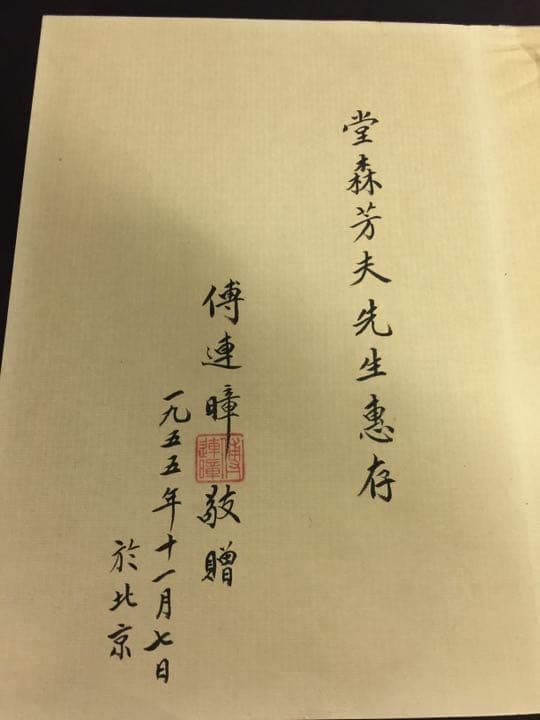 堂森芳夫先生惠存
傅連暲敬贈
傅連暲
一九五五年十一月七日
於北京